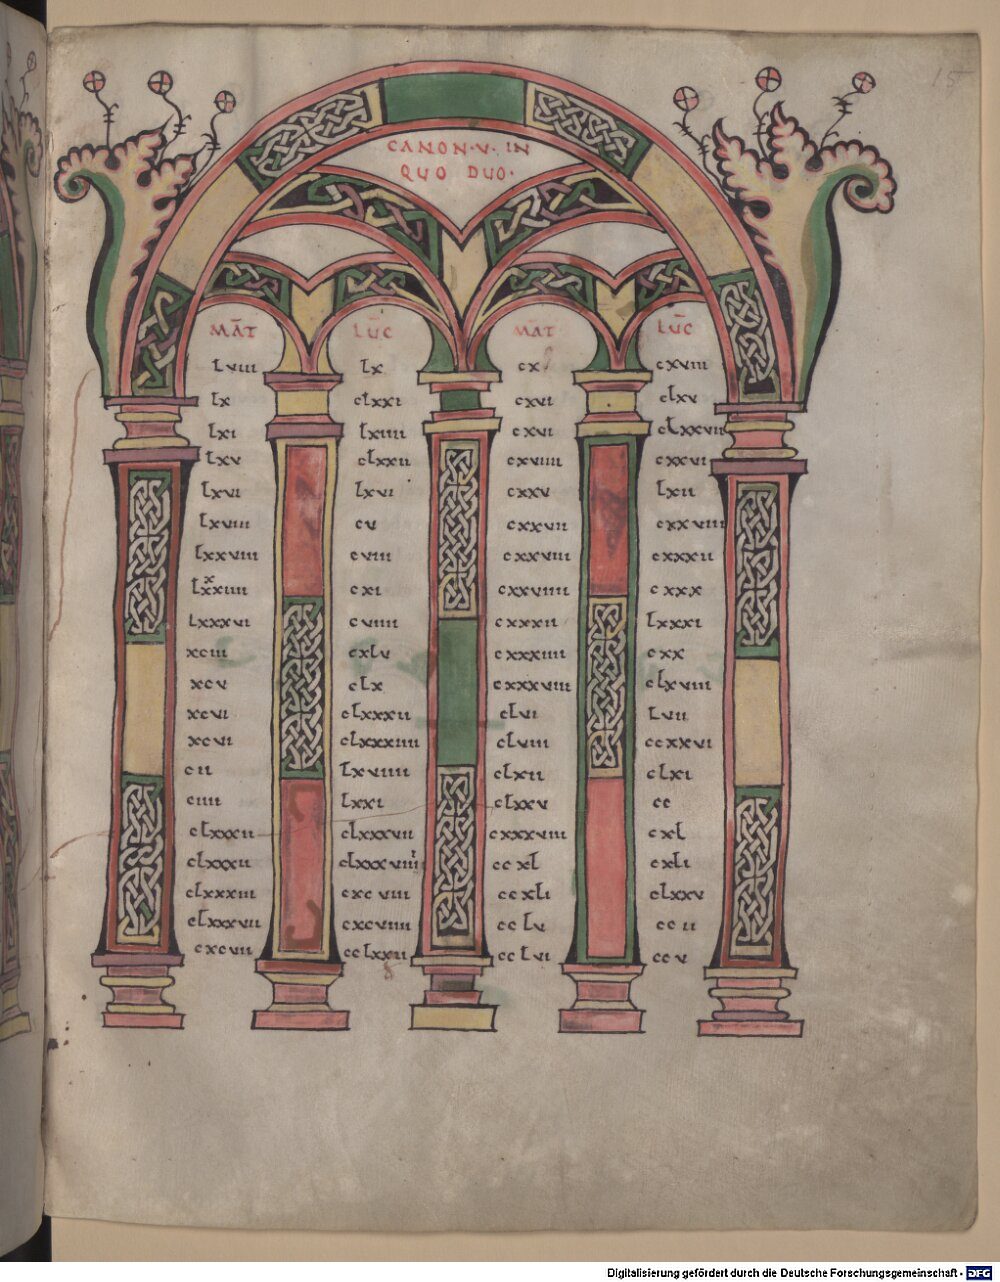 15
CANON·V· IN
QUO DUO·
MAT̄ LUC̄ MAT̄ LUC̄
lviii lx cx cxviii
lx clxxi cxvi clxv
lxi lxiiii cxvi clxxvii
lxv clxxii cxviiii cxxvi
lxvi lxvi cxxv lxii
lxviii cv cxxvii cxxviii
lxxviii cviii cxxviii cxxxii
lxxxiiii cxi cxxviiii cxxx
lxxxvi cviiii cxxxii lxxxi
xciii cxlv cxxxiiii cxx
xcv clx cxxxviii clxviii
xcvi clxxxii clvi lvii
xcvi clxxxiiii clviii ccxxvi
cii lxviiii clxii clxi
ciiii lxxi clxxv cc
clxxxii clxxxvii cxxxviii cxl
clxxxii clxxxviiii ccxl cxli
clxxxiii cxcviii ccxli clxxv
clxxxvii cxcviiii cclv ccii
cxcvii cclxxii cclvi ccv
Digitalisierung gefördert durch die Deutsche Forschungsgemeinschaft - DFG